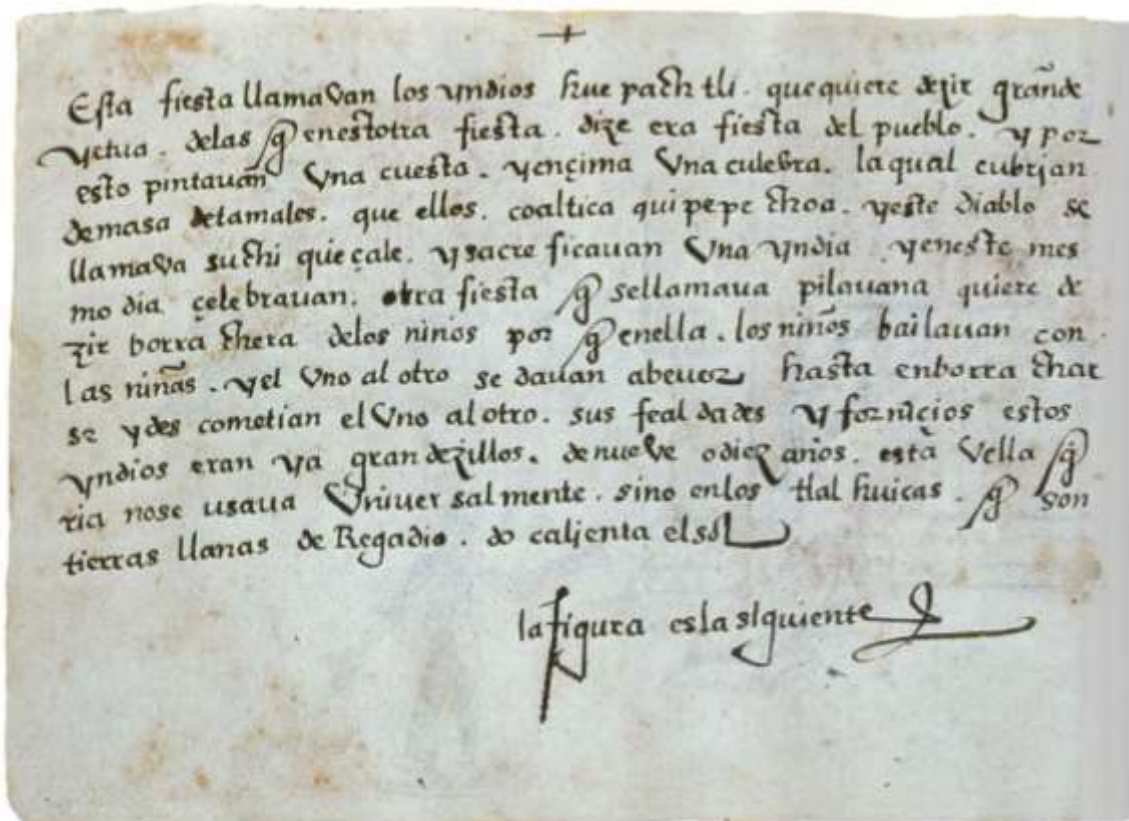 Esta fiesta llamavan los yndios hue pach tli. que quiere dezir grãnde
yerua. delas q̃ enestotra fiesta. dize era fiesta del pueblo. y por
esto pintauan vna cuesta. yençima vna culebra. laqual cubrjan
demasa detamales. que ellos. coaltica qui pepe choa. yeste diablo se
llamava suchi queçale. ysacre ficauan vna yndia yeneste mes
mo dia çelebrauan. otra fiesta q̃ sellamaua pilauana quiere de
zir borrachera delos ninos por q̃ enella. los niños bailauan con
las niñas. yel vno al otro se dauan abeuer hasta enborrachar
se ydes cometian el vno al otro. sus fealdades y fornicios estos
yndios eran ya grandezillos. denueve odiez años. esta vella q̃
ria nose usaua vniuersalmente. sino enlos tlalhuicas. q̃ son
tierras llanas de Regadio. do caljenta elsol
la figura esla siguiente